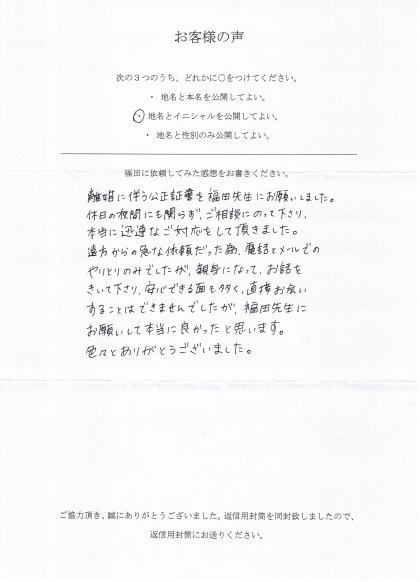 お客様の声
次の３つのうち、どれかに○をつけてください。
・ 地名と本名を公開してよい。
・ 地名とイニシャルを公開してよい。
・ 地名と性別のみ公開してよい。
福田に依頼してみた感想をお書きください。
離婚に伴う公正証書を福田先生にお願いしました。
休日の夜間にも関らず、ご相談にのって下さり、
本当に迅速なご対応をして頂きました。
遠方からの急な依頼だった為、電話とメールでの
やりとりのみでしたが、親身になって、お話を
きいて下さり、安心できる面も多く、直接お会い
することはできませんでしたが、福田先生に
お願いして本当に良かったと思います。
色々とありがとうございました。
ご協力頂き、誠にありがとうございました。返信用封筒を同封致しましたので、
返信用封筒にお送りください。